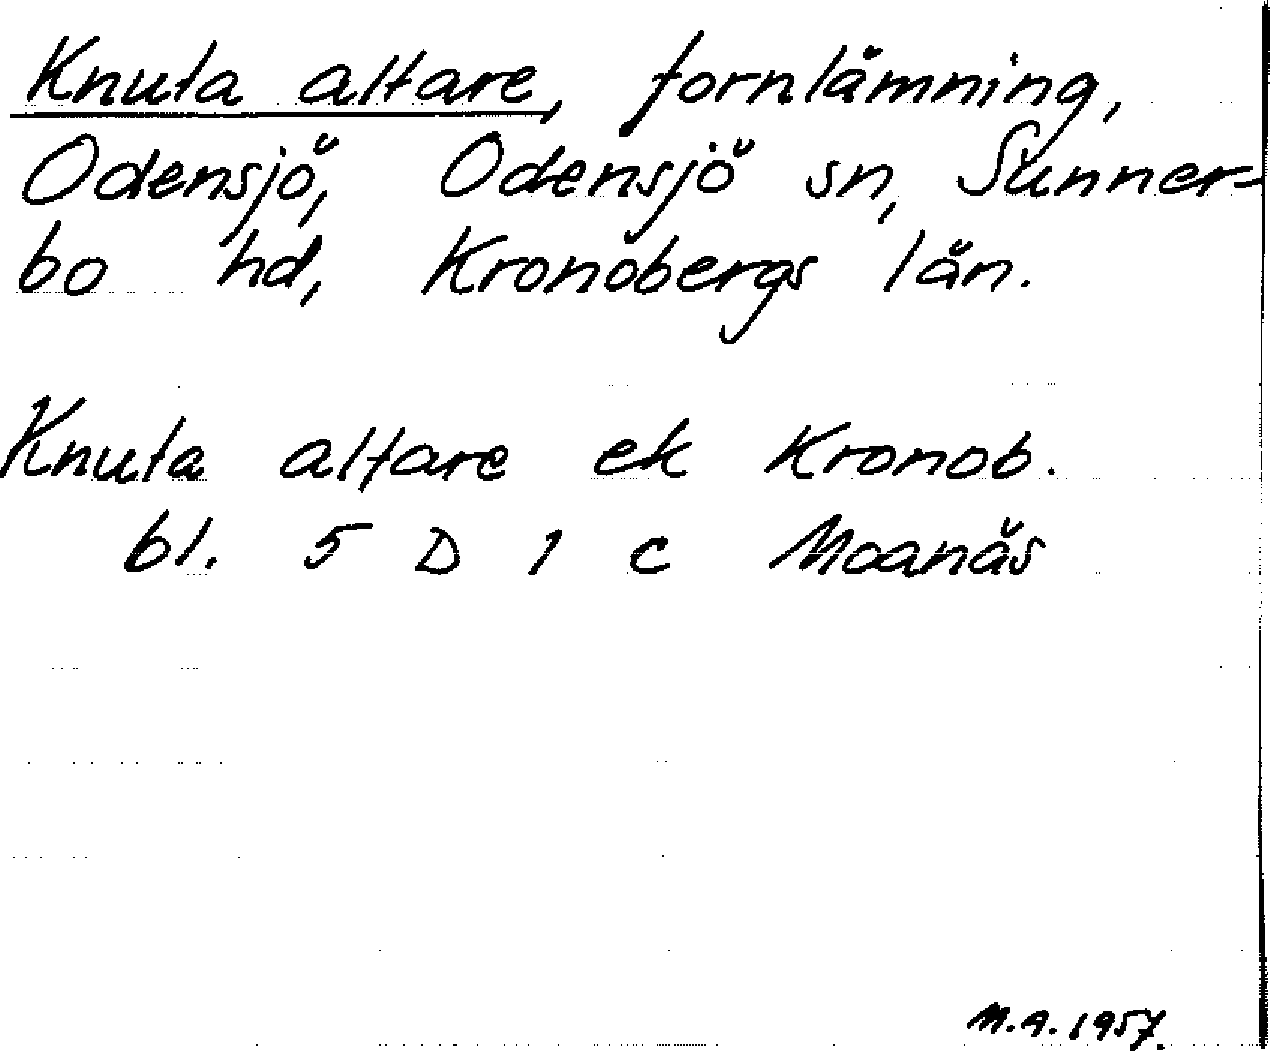 Knuta altare, fornlämning,
Odensjö, Odensjö sn, Sunner-
bo hd, Kronobergs län.
Knuta altare ek Kronob.
bl. 5 D 1 c Moanäs
M.A. 1957.